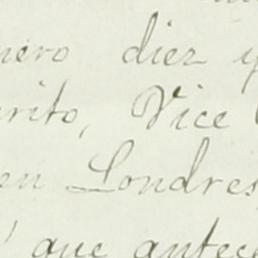 nero diez y
rito, Vice
en Londres
que antece